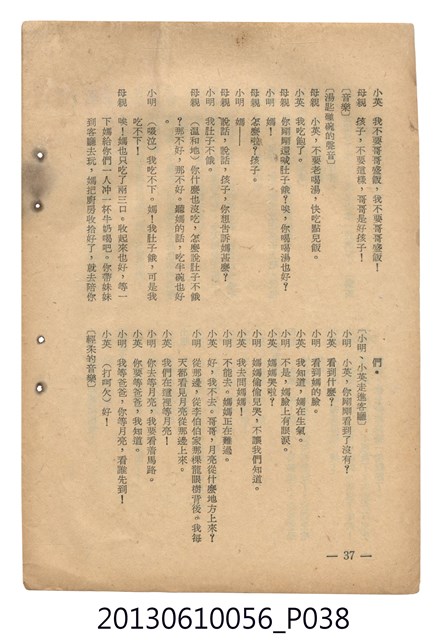 小英　我不要哥哥盛飯，我不要哥哥盛飯！
母親　孩子，不要這樣，哥哥是好孩子！
〔音樂〕
〔湯匙碰碗的聲音〕
母親　小英，不要老喝湯，快吃點兒飯。
小英　我吃飽了。
母親　你剛剛還喊肚子餓？唉，你喝喝湯也好？
小明　媽！
母親　怎麼啦？孩子。
小明　媽——
母親　說話，說話，孩子，你想告訴媽甚麼？
小明　我肚子不餓。
母親　（溫和地）你什麼也沒吃，怎麼說肚子不餓
？那不好，那不好。聽媽的話，吃半碗也好
。
小明　（啜泣）我吃不下。媽！我肚子餓，可是我
吃不下！
母親　唉！媽也只吃了兩三口。收起來也好，等一
下媽給你們一人冲一杯牛奶喝吧。你帶妹妹
到客廳去玩，媽把廚房收拾好了，就去陪你
們。
〔小明、小英走進客廳〕
小明　小英，你剛剛看到了沒有？
小英　看到什麼？
小明　看到媽的臉。
小英　我知道，媽在生氣。
小明　不是，媽臉上有眼淚。
小英　媽媽哭啦？
小明　媽媽偷偷兒哭，不讓我們知道。
小英　我去問媽媽！
小明　不能去。媽媽正在難過。
小英　好，我不去。哥哥，月亮從什麼地方上來？
小明　從那邊，從李伯伯家那棵龍眼樹背後。我每
天都看見月亮從那邊上來。
小英　我們在這裡等月亮！
小明　你去等月亮，我要看着馬路。
小英　你要等爸爸，我知道。
小明　我等爸爸，你等月亮，看誰先到！
小英　（打呵欠）好！
〔輕柔的音樂〕
— 37 —
20130610056_P038